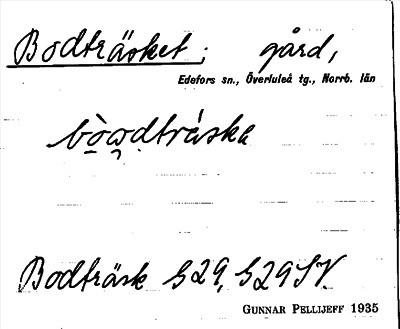 Bodträsket; gård,
Edefors sn., Överluleå tg., Norrb. län
bòwdtráska
Bodträsk S29, S29SV.
GUNNAR PELLIJEFF 1935